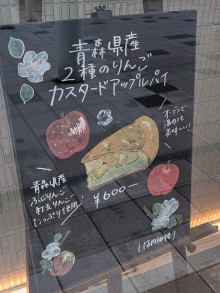 青森県産
2種のりんご
カスタードアップルパイ
オーブンで
温めても
美味しい!
青森県産
ふじりんご
紅玉りんご
たっぷり使用!
¥600-